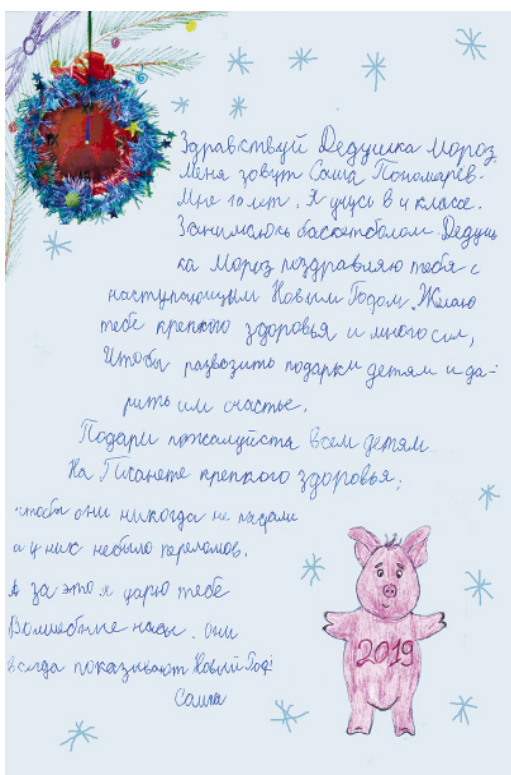 Здравствуй Дедушка Мороз
Меня зовут Саша Пономарев.
Мне 10 лет. Я учусь в 4 классе.
Занимаюсь баскетболом. Дедуш
ка Мороз поздравляю тебя с
наступающим Новым Годом. Желаю
тебе крепкого здоровья и много сил,
Чтобы развозить подарки детям и да-
рить им счастье.
Подари пожалуйста всем детям
На Планете крепкого здоровья,
чтобы они никогда не падали
а у них небыло переломов.
А за это я дарю тебе
Волшебные часы. Они
всегда показывают Новый Год!
Саша
2019